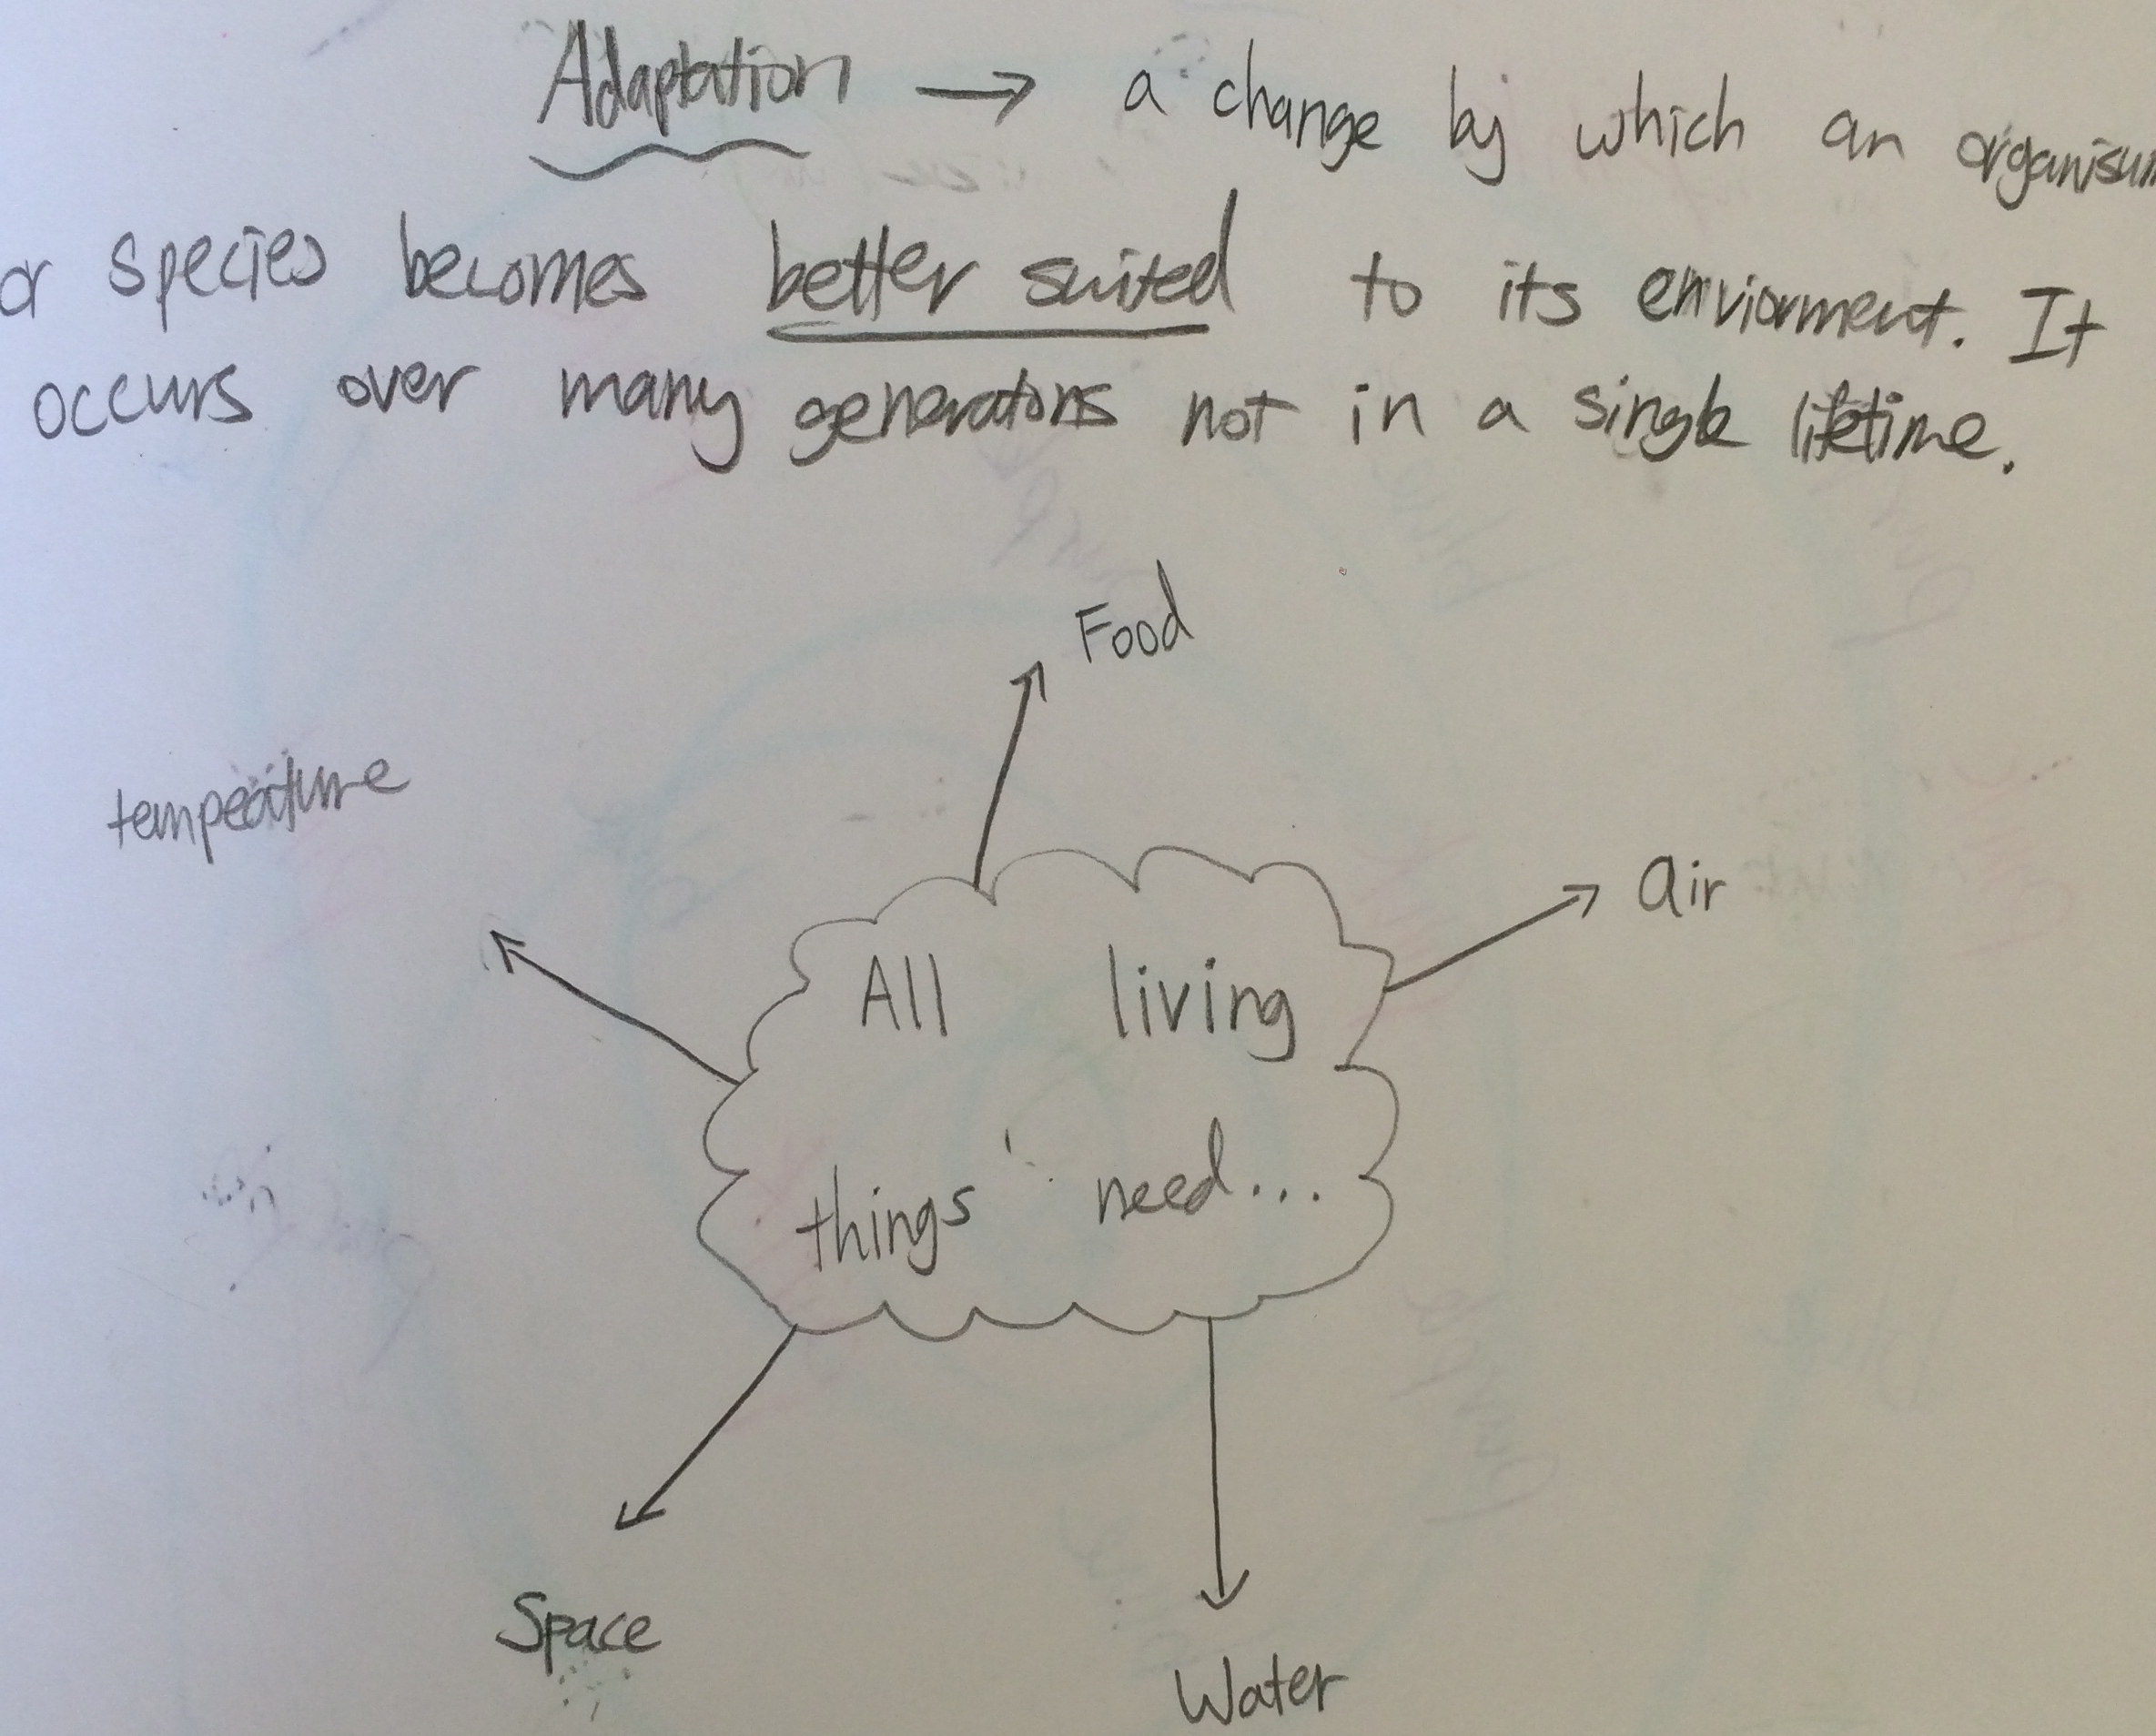 Adaptation → a change by which an organisum
or species becomes better suited to its enviorment. It
occurs over many generatons not in a single lifetime.
Food
tempeature
air
All living
things need...
Space
Water